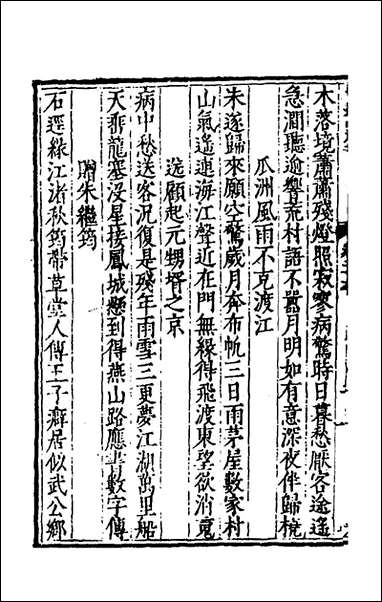 木落境蕭蕭殘燈照寂寥病驚時日暮愁厭客途遙
急澗聽逾響荒村語不囂月明如有意深夜伴歸橈
瓜洲風雨不克渡江
未遂歸來願空驚歲月奔布帆三日雨茅屋數家村
山氣遥連海江聲近在門無緣得飛渡東望欲消䰟
送顧起元甥壻之京
病中愁送客况復是殘年雨雪三更夢江湖萬里船
天垂龍塞没星接鳳城懸到得燕山路應書數字傳
贈朱繼筠
石逕綠江渚秋筠帶草堂人傳王子癖居似武公鄉